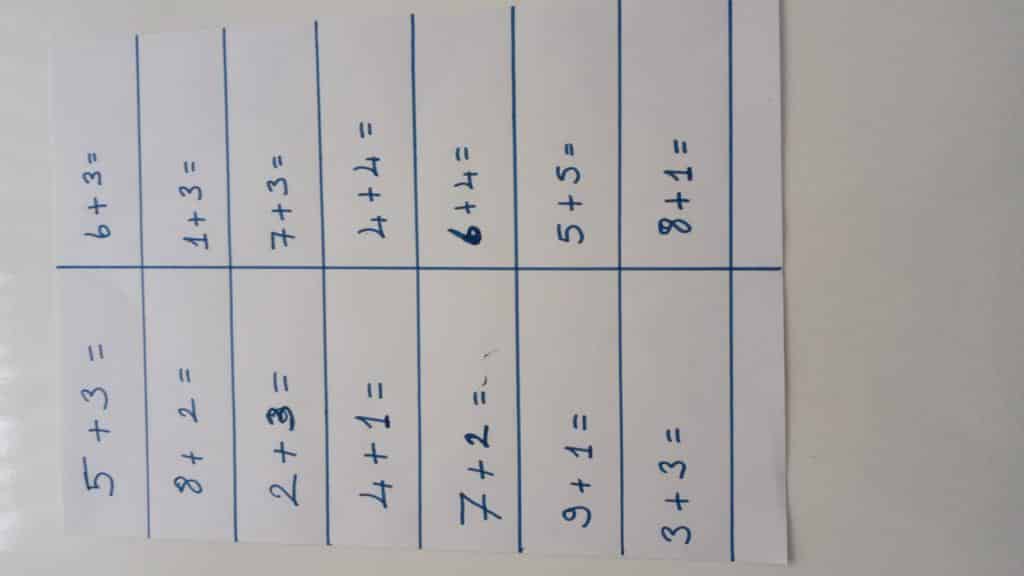 5 + 3 =
6 + 3 =
8 + 2 =
1 + 3 =
2 + 3 =
7 + 3 =
4 + 1 =
4 + 4 =
7 + 2 =
6 + 4 =
9 + 1 =
5 + 5 =
3 + 3 =
8 + 1 =